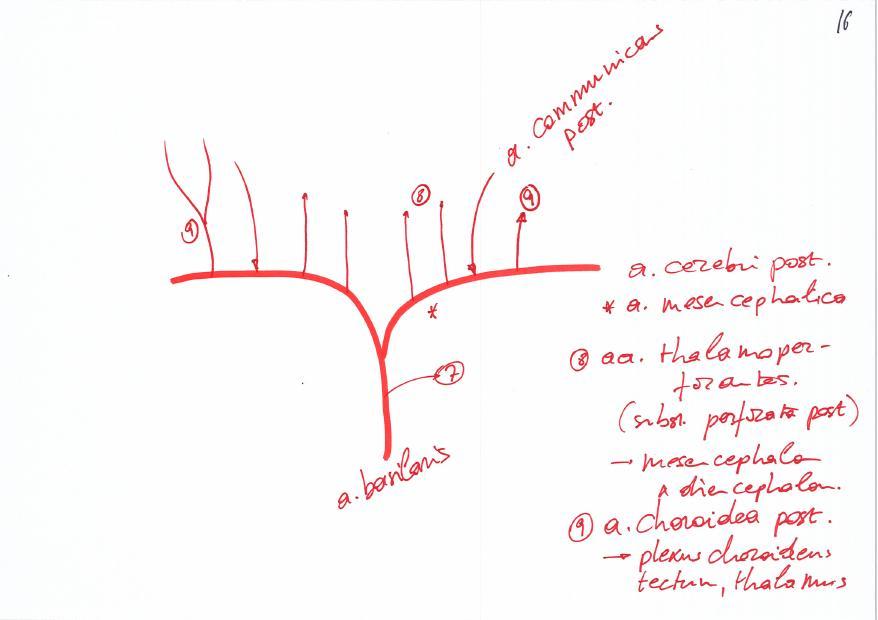 16
a. communicans
post.
9
8
9
a. cerebri post.
* a. mesencephalica
*
8 aa. thalamoper-
forantes.
7
(subst. perforata post)
→ mesencephalon
a. basilaris
diencephalon.
9 a. choroidea post.
→ plexus choroideus
tectum, thalamus